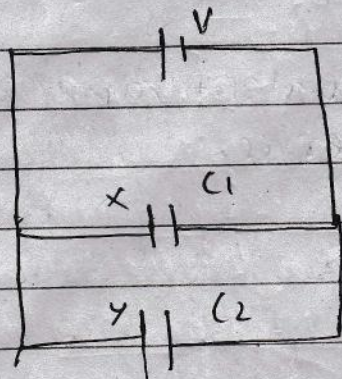 V
X C1
Y C2